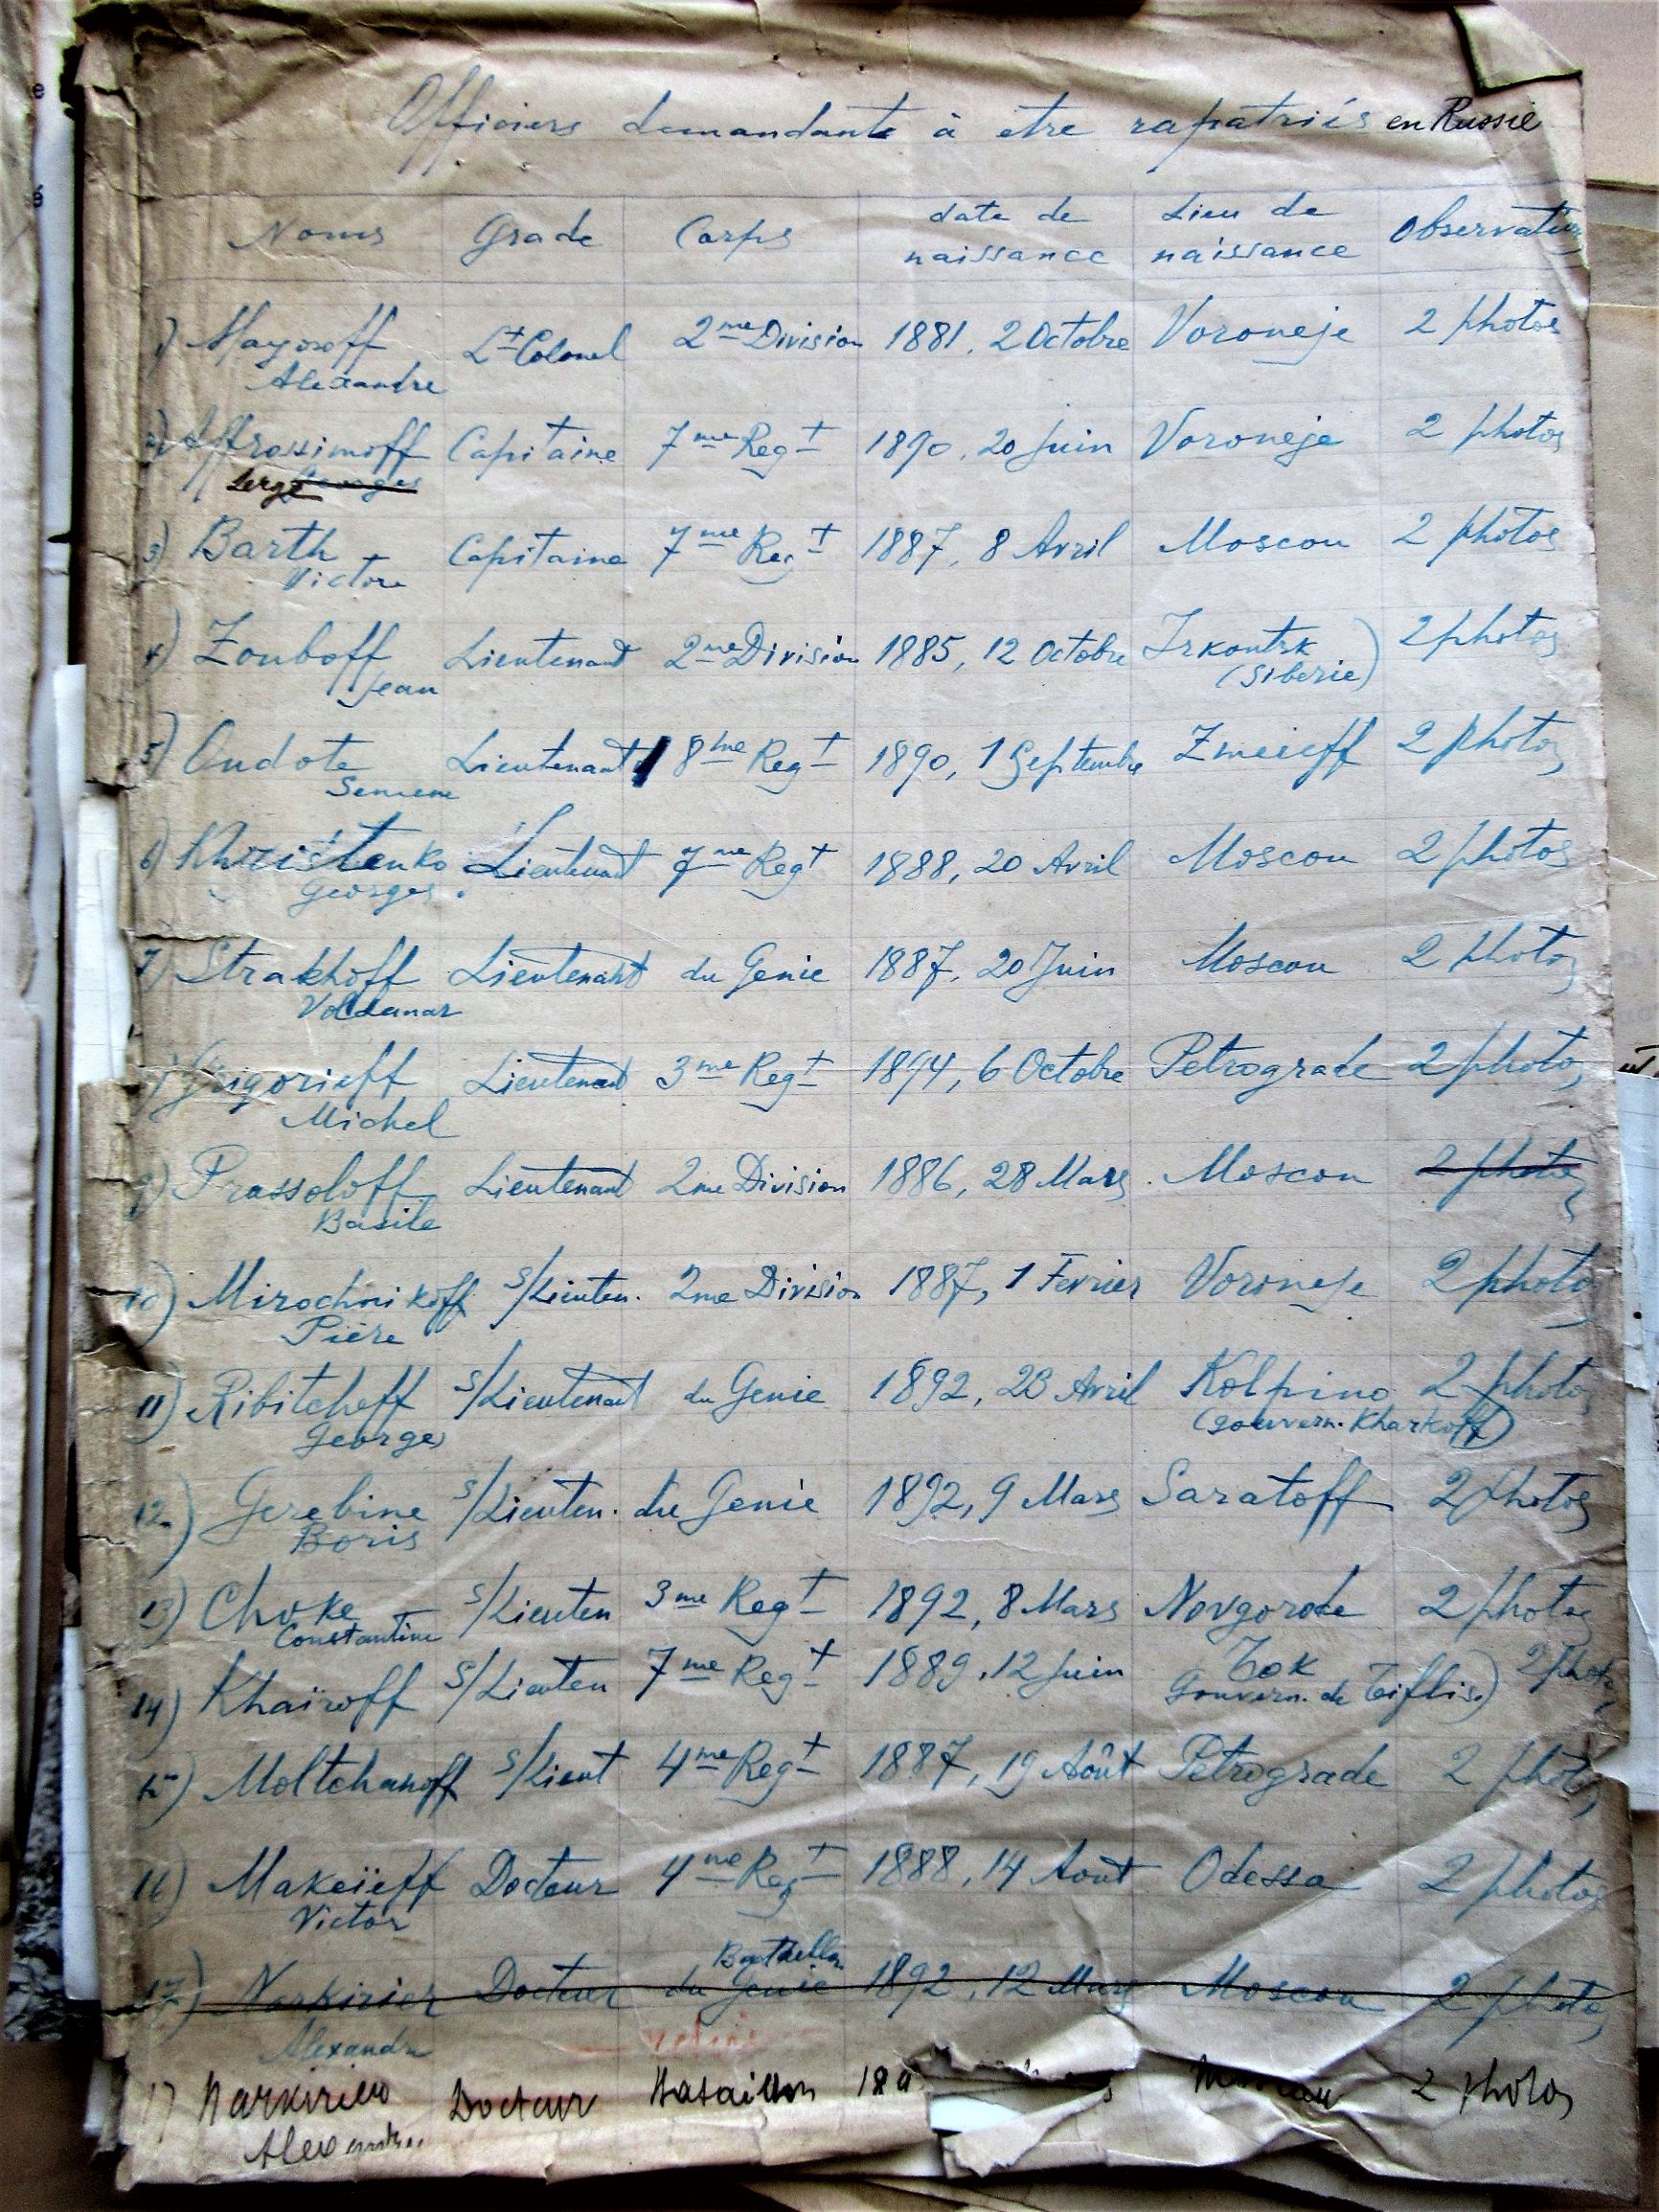 Officiers demandants à etre rapatriés en Russie
Noms Grade Corps date de naissance Lieu de naissance Observation
1) Lt Colonel 2me Division 1881, 2 Octobre Voroneje 2 photos
Alexandre
2) Affrossimoff Capitaine 7me Regt 1890, 20 Juin Voroneje 2 photos
Serge Georges
3) Barth Capitaine 7me Regt 1887, 8 Avril Moscou 2 photos
Victore
4) Zouboff Lieutenant 2me Division 1885, 12 Octobre Irkoutsk 2 photos
Jean (Siberie)
5) Oudote Lieutenant 8me Regt 1890, 1 Septembre Zmeieff 2 photos
Semene
6) Khristenko Lieutenant 7me Regt 1888, 20 Avril Moscou 2 photos
Georges
7) Strakhoff Lieutenant du Genie 1887, 20 Juin Moscou 2 photos
Voldemar
Grigorieff Lieutenant 3me Regt 1894, 6 Octobre Petrograde 2 photos
Michel
9) Prassoloff Lieutenant 2me Division 1886, 28 Mars Moscou 2 photos
Basile
10) Mirochnikoff S/Lieuten. 2me Division 1887, 1 Fevrier Voroneje 2 photos
Piere
11) Ribitcheff S/Lieutenant du Genie 1892, 23 Avril Kolpino 2 photos
Georges (gouvern. Kharkoff)
12) Gerebine S/Lieuten. du Genie 1892, 9 Mars Saratoff 2 photos
Boris
13) Choke S/Lieuten 3me Regt 1892, 8 Mars Novgorode 2 photos
Constantine
14) Khaïroff S/Lieuten 7me Regt 1889, 12 Juin 2 photos
Gouvern. de Tiflis)
15) Moltchanoff S/Lieut 4me Regt 1887, 19 Août Petrograde 2 photos
16) Makeïeff Docteur 4me Regt 1888, 14 Aout Odessa 2 photos
Victor
17) Narkirier Docteur du Genie 1892, 12 Mars Moscou 2 photos
Alexandre
17 Docteur Bataillon 189 Moscou 2 photos
Alexandre